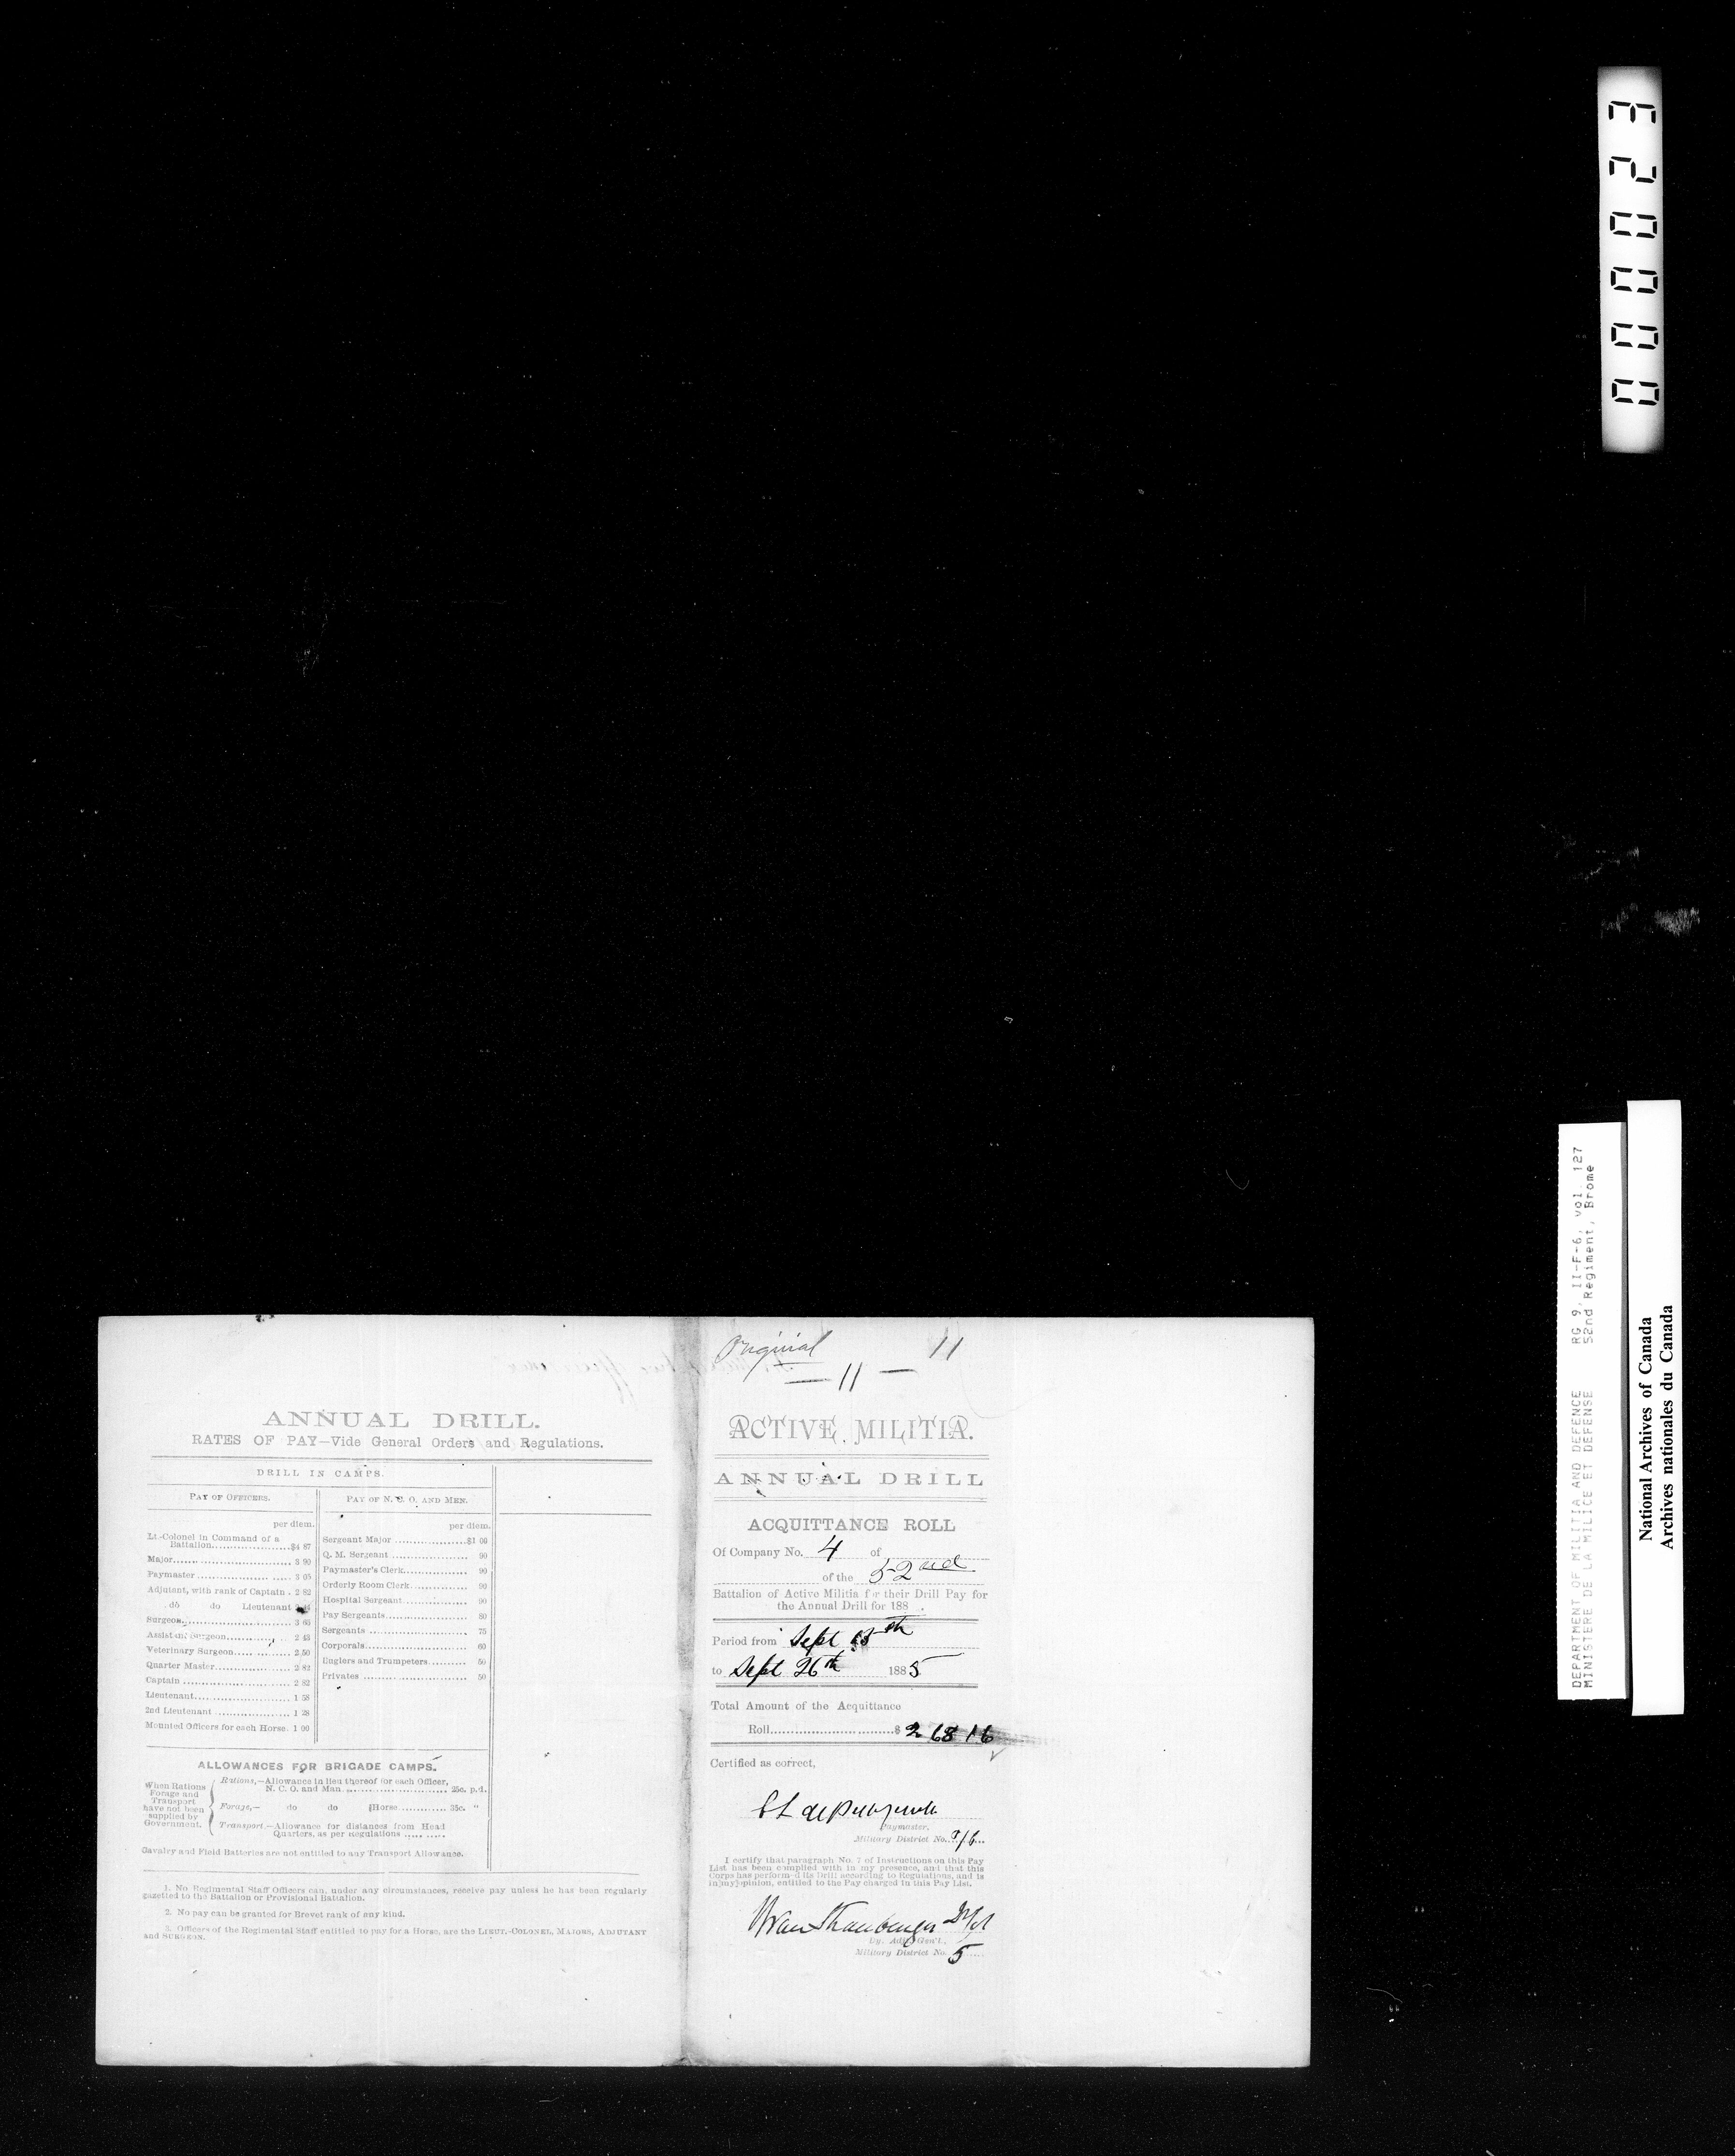 000023
DEPARTMENT OF MILITIA AND DEFENCE RG 9, II-F-6, vol. 127
MINISTERE DE LA MILICE ET DEFENSE 52nd Regiment, Brome
National Archives of Canada
Archives nationales du Canada
ANNUAL DRILL.
RATES OF PAY—Vide General Orders and Regulations.
DRILL IN CAMPS.
PAY OF OFFICERS.
per diem.
Lt.-Colonel in Command of a
Battalion....................$4 87
Major.................... 3 90
Paymaster .................... 3 05
Adjutant, with rank of Captain . 2 82
do do Lieutenant
Surgeon.................... 3 65
Assistant Surgeon.................... 2 43
Veterinary Surgeon.................... 2 50
Quarter Master.................... 2 82
Captain .................... 2 82
Lieutenant.................... 1 58
2nd Lieutenant .................... 1 28
Mounted Officers for each Horse. 1 00
PAY OF N. C. O. AND MEN.
per diem.
Sergeant Major ....................$1 00
Q. M. Sergeant .................... 90
Paymaster's Clerk.................... 90
Orderly Room Clerk.................... 90
Hospital Sergeant.................... 90
Pay Sergeants.................... 80
Sergeants .................... 75
Corporals.................... 60
Buglers and Trumpeters.................... 50
Privates .................... 50
ALLOWANCES FOR BRIGADE CAMPS.
When Rations
Forage and
Transport
have not been
supplied by
Government.
Rations,—Allowance in lieu thereof for each Officer,
N. C. O. and Man .................... 25c. p.d.
Forage,— do do Horse............ 35c. "
Transport.—Allowance for distances from Head
Quarters, as per Regulations ..... .....
Cavalry and Field Batteries are not entitled to any Transport Allowance.
1. No Regimental Staff Officers can, under any circumstances, receive pay unless he has been regularly
gazetted to the Battalion or Provisional Battalion.
2. No pay can be granted for Brevet rank of any kind.
3. Officers of the Regimental Staff entitled to pay for a Horse, are the LIEUT.-COLONEL, MAJORS, ADJUTANT
and SURGEON.
Original 11
— 11 —
ACTIVE MILITIA.
ANNUAL DRILL
ACQUITTANCE ROLL
Of Company No. 4 of
of the 52nd
Battalion of Active Militia for their Drill Pay for
the Annual Drill for 188
Period from Sept 15th
to Sept 26th 1885
Total Amount of the Acquittance
Roll....................$ 268 16
Certified as correct,
Paymaster.
Military District No. 5/6
I certify that paragraph No. 7 of Instructions on this Pay
List has been complied with in my presence, and that this
Corps has performed its Drill according to Regulations, and is
in my opinion, entitled to the Pay charged in this Pay List.
Dy. Adjt. Gen'l.
Military District No. 5